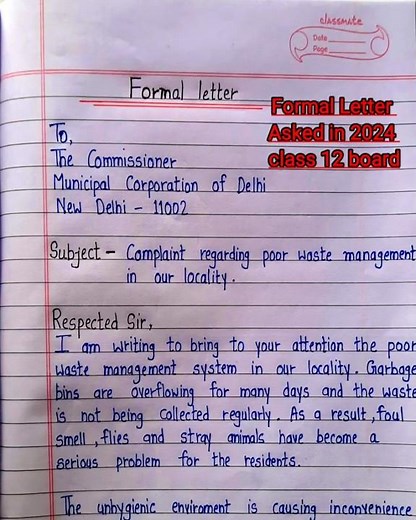 classmate
Date
Page
Formal letter
Formal Letter
Asked in 2024
class 12 board
To,
The Commissioner
Municipal Corporation of Delhi
New Delhi - 11002
Subject - Complaint regarding poor waste management
in our locality.
Respected Sir,
I am writing to bring to your attention the poor
waste management system in our locality. Garbage
bins are overflowing for many days and the waste
is not being collected regularly. As a result, foul
smell, flies and stray animals have become a
serious problem for the residents.
The unhygienic enviroment is causing inconvenience